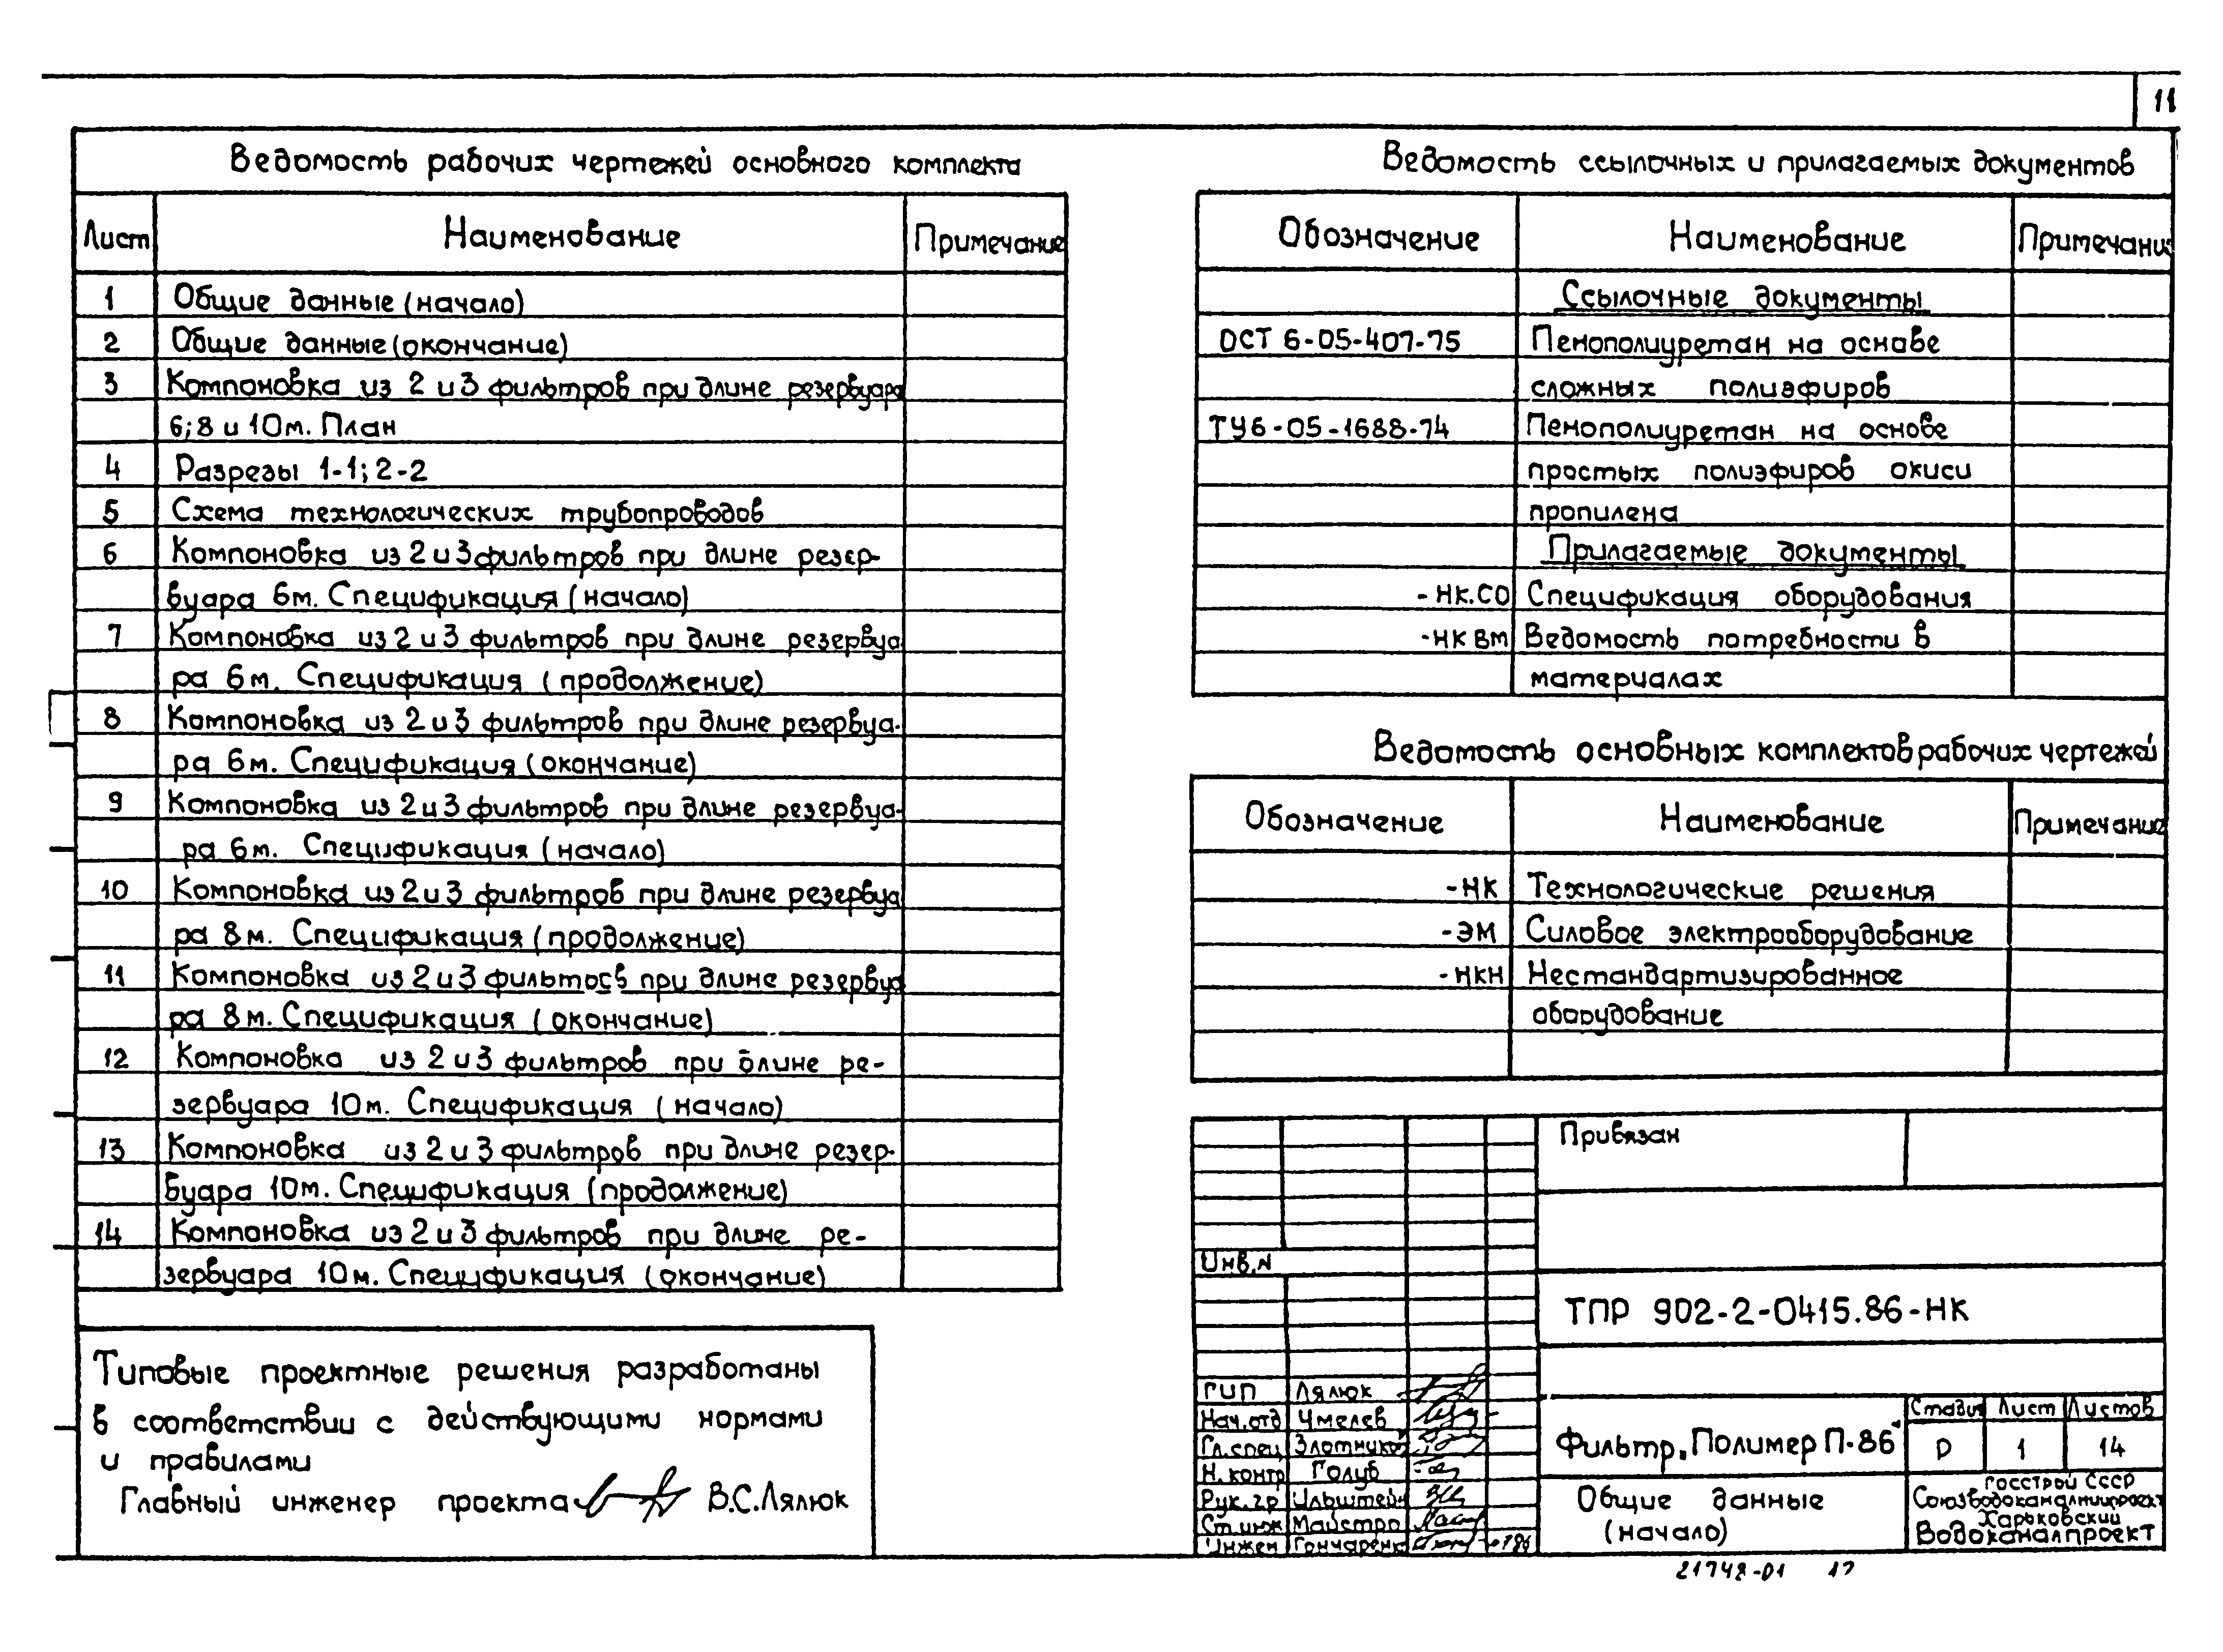 11
Ведомость рабочих чертежей основного комплекта
Лист Наименование Примечание
1 Общие данные (начало)
2 Общие данные (окончание)
3 Компоновка из 2 и 3 фильтров при длине резервуара
6; 8 и 10м. План
4 Разрезы 1-1; 2-2
5 Схема технологических трубопроводов
6 Компоновка из 2 и 3 фильтров при длине резер-
вуара 6м. Спецификация (начало)
7 Компоновка из 2 и 3 фильтров при длине резервуа
ра 6м. Спецификация (продолжение)
8 Компоновка из 2 и 3 фильтров при длине резервуа-
ра 6м. Спецификация (окончание)
9 Компоновка из 2 и 3 фильтров при длине резервуа-
ра 6м. Спецификация (начало)
10 Компоновка из 2 и 3 фильтров при длине резервуа
ра 8м. Спецификация (продолжение)
11 Компоновка из 2 и 3 фильтров при длине резервуа
ра 8м. Спецификация (окончание)
12 Компоновка из 2 и 3 фильтров при длине ре-
зервуара 10м. Спецификация (начало)
13 Компоновка из 2 и 3 фильтров при длине резер-
вуара 10м. Спецификация (продолжение)
14 Компоновка из 2 и 3 фильтров при длине ре-
зервуара 10м. Спецификация (окончание)
Типовые проектные решения разработаны
в соответствии с действующими нормами
и правилами
Главный инженер проекта В.С.Лялюк
Ведомость ссылочных и прилагаемых документов
Обозначение Наименование Примечание
Ссылочные документы
ОСТ 6-05-407-75 Пенополиуретан на основе
сложных полиэфиров
ТУ6-05-1688-74 Пенополиуретан на основе
простых полиэфиров окиси
пропилена
Прилагаемые документы
-НК.СО Спецификация оборудования
-НК ВМ Ведомость потребности в
материалах
Ведомость основных комплектов рабочих чертежей
Обозначение Наименование Примечание
-НК Технологические решения
-ЭМ Силовое электрооборудование
-НКН Нестандартизированное
оборудование
Привязан
Инв.N
ТПР 902-2-0415.86-НК
ГИП Лялюк
Нач.отд Чмелев
Гл.спец Злотников
Н.контр Голуб
Рук.гр Ильштейн
Ст.инж Майстро
Инжен Гончаренко
Фильтр „Полимер П-86"
Стадия Лист Листов
Р 1 14
Общие данные
(начало)
Госстрой СССР
Союзводоканалниипроект
Харьковский
Водоканалпроект
21748-01 12